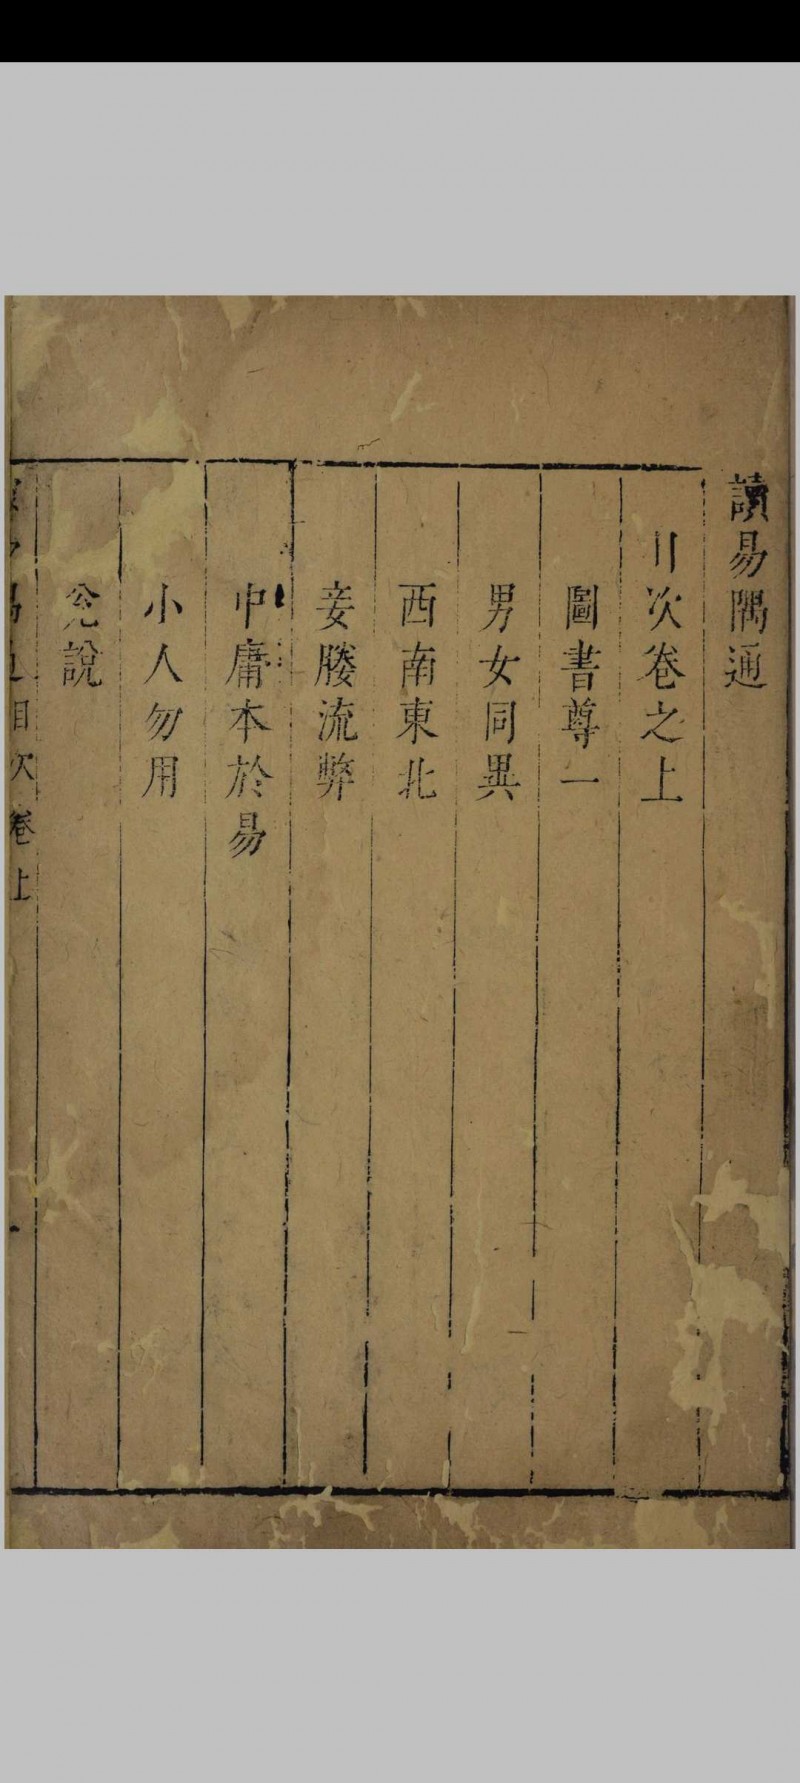 讀易隅通
目次卷之上
圖書尊一
男女同異
西南東北
妾媵流弊
中庸本於易
小人勿用
兊說
易隅通目次卷上